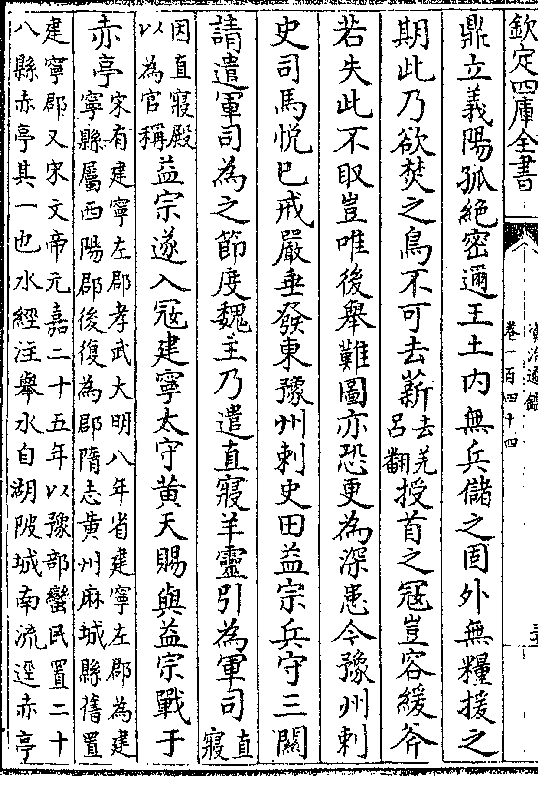 欽定四庫全書
資治通鑑
卷一百四十四
鼎立義陽孤絶密邇王土内無兵儲之固外無糧援之
期此乃欲焚之鳥不可去薪去羌吕翻授首之冦豈容緩斧
若失此不取豈唯後舉難圖亦恐更為深患今豫州刺
史司馬悦已戒嚴垂發東豫州刺史田益宗兵守三關
請遣軍司為之節度魏主乃遣直寢羊靈引為軍司直寢
因直寢殿以為官稱益宗遂入冦建寧太守黄天賜與益宗戰于
赤亭宋有建寧左郡孝武大明八年省建寧左郡為建
寧縣屬西陽郡後復為郡隋志黄州麻城縣舊置
建寧郡又宋文帝元嘉二十五年以豫部蠻民置二十
八縣赤亭其一也水經注舉水自湖陂城南流逕赤亭